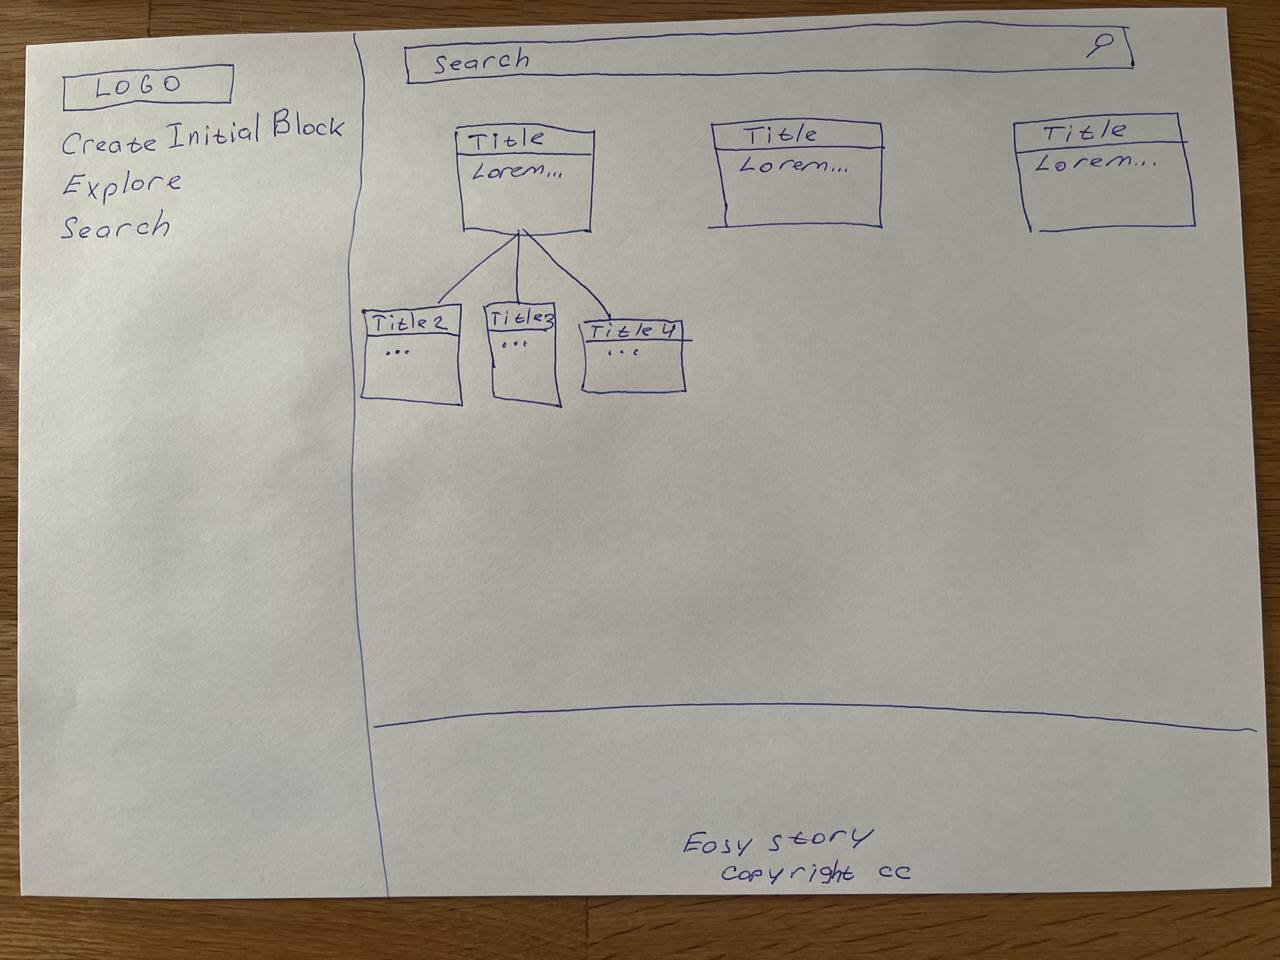 LOGO
Create Initial Block
Explore
Search
Search
Title
Lorem...
Title
Lorem...
Title
Lorem...
Title2
...
Title3
...
Title 4
...
Easy story
Copyright cc